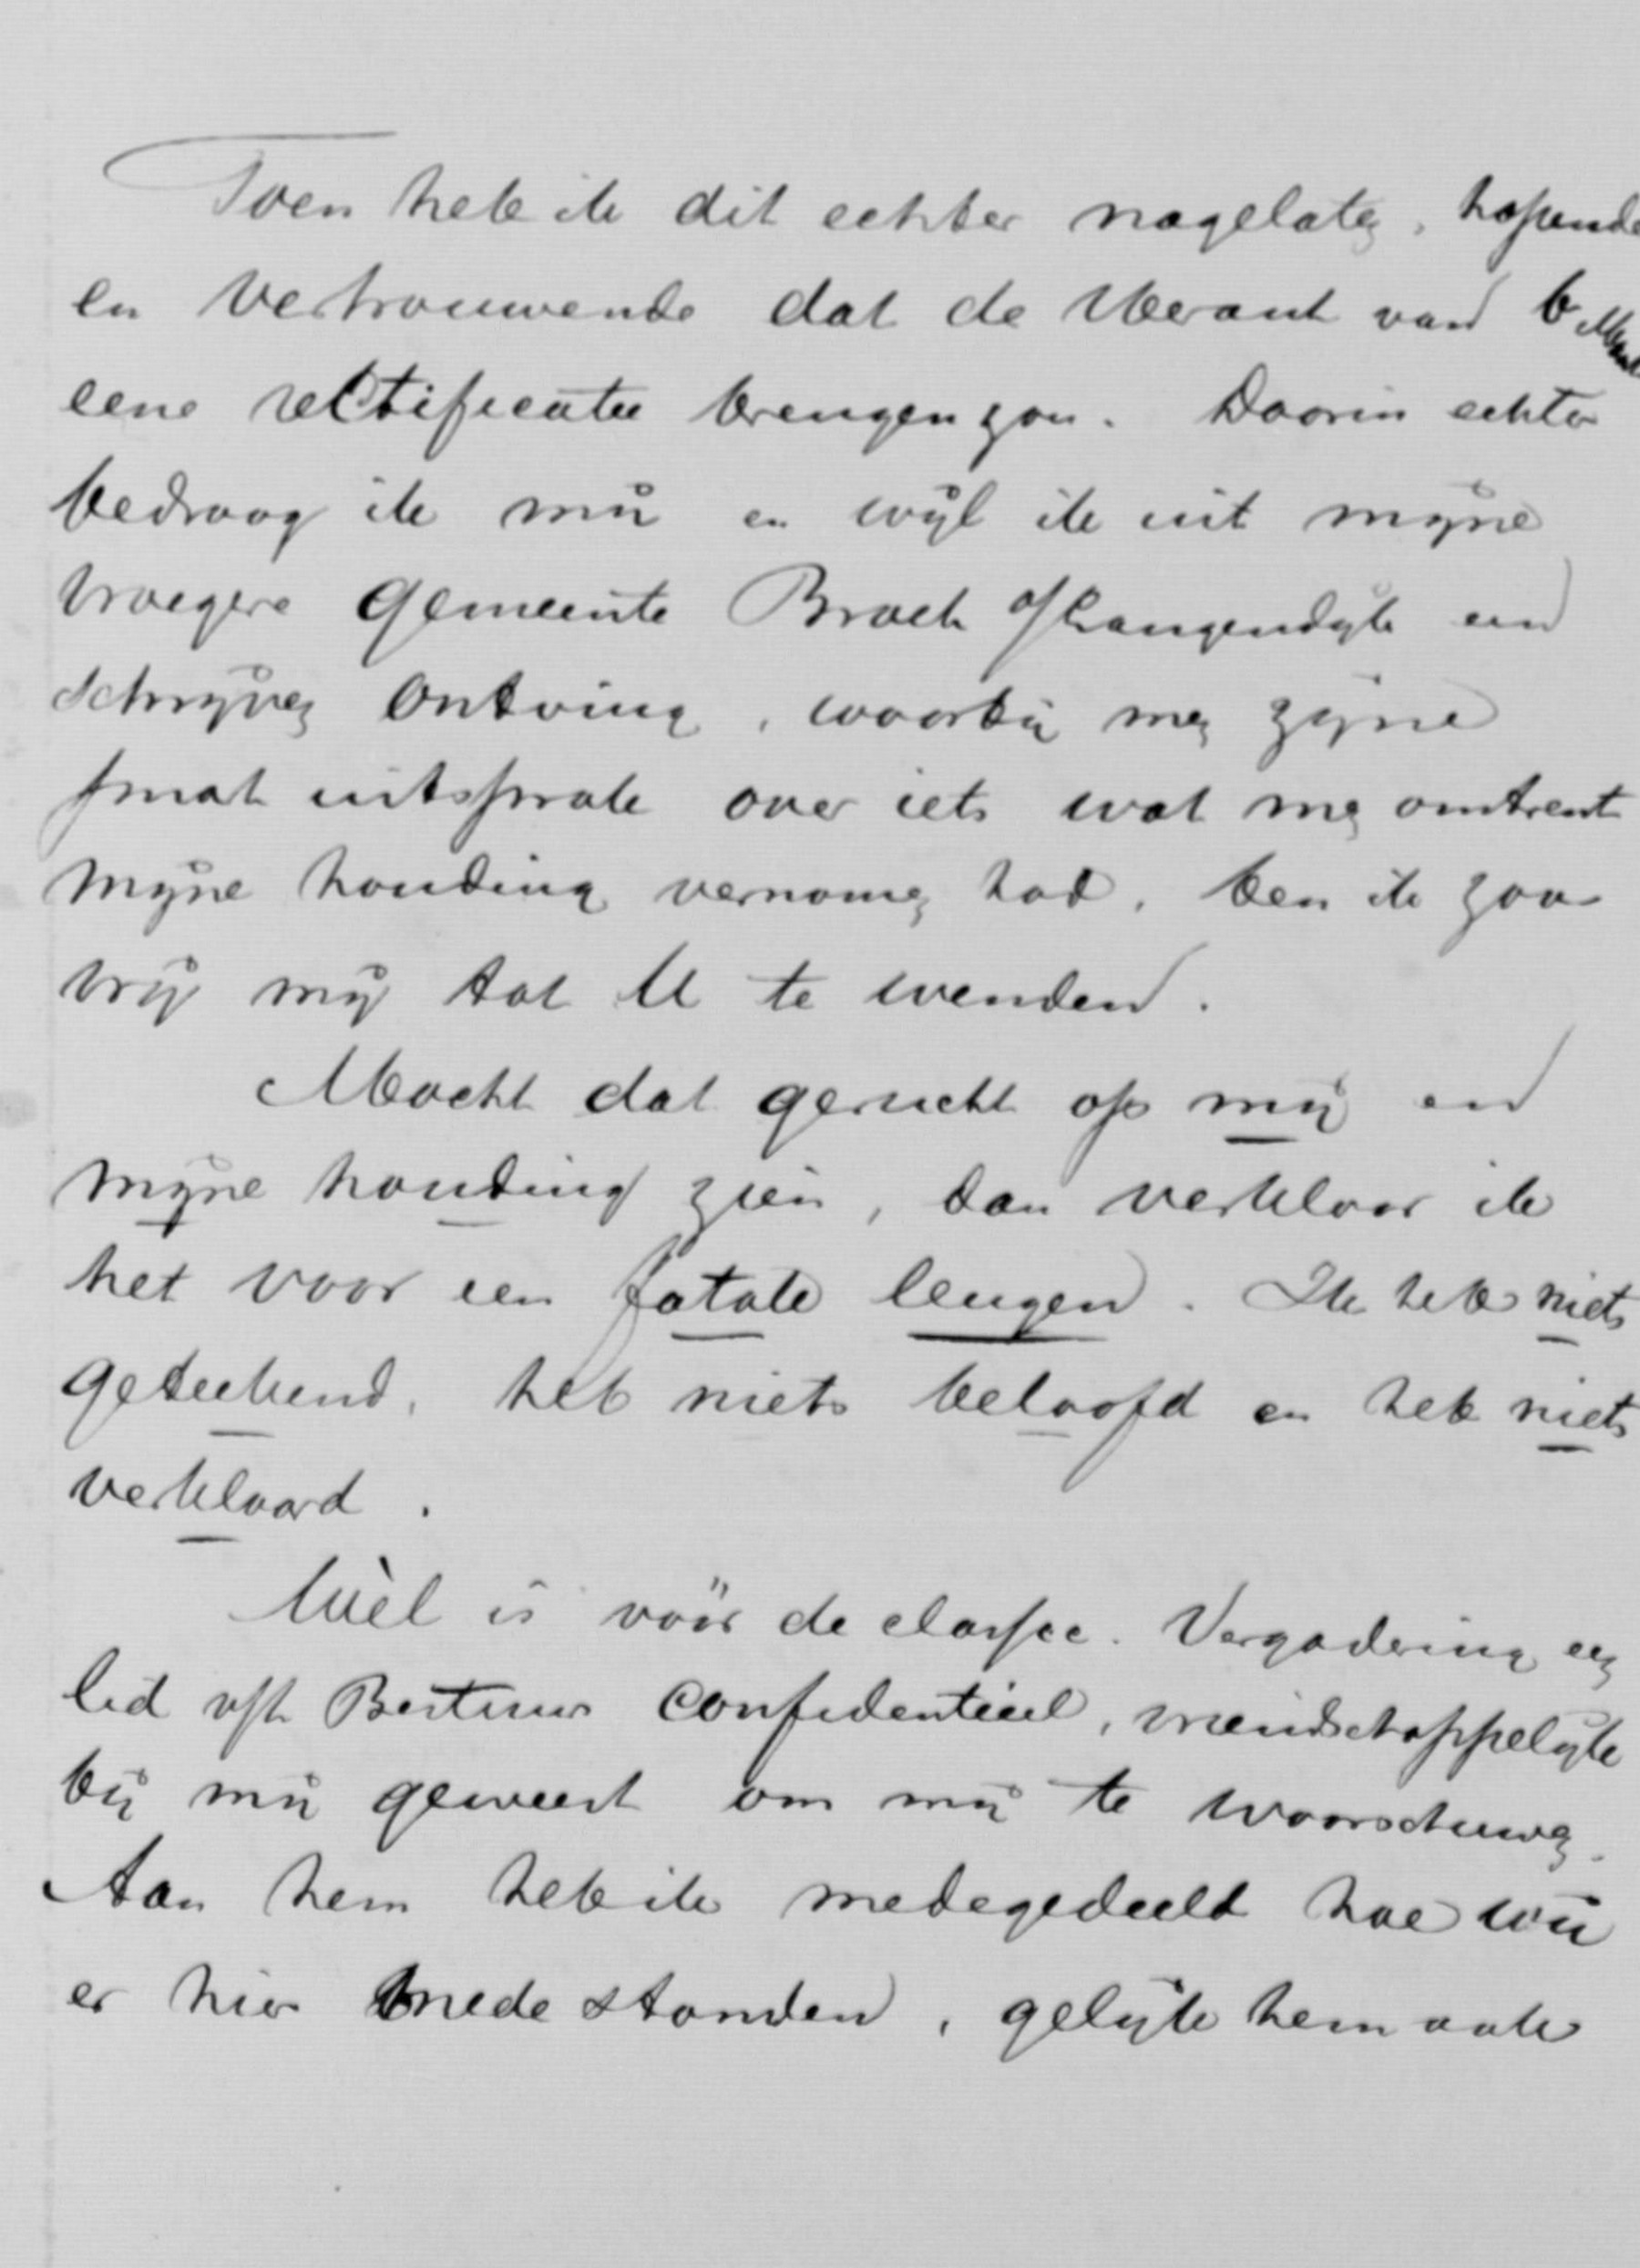 Toen heb ik dit echter nagelaten, hopende
en vertrouwende dat de Heraut van 6
eene rectificatie brengen zou. Daarin echter
bedroog ik mij en wijl ik uit mijne
vroegere Gemeente Broek o/Langendijk een
schrijven ontving, waarbij men zijne
smart uitsprak over iets wat men omtrent
mijne houding vernomen had, ben ik zoo
vrij mij tot U te wenden.
Mocht dat gerucht op mij en
mijne houding zien, dan verklaar ik
het voor een fatale leugen. Ik heb niets
geteekend, heb niets beloofd en heb niets
verklaard.
Wèl is vóór de classic. Vergadering een
lid v/h Bestuur confidentieel, vriendschappelijk
bij mij geweest om mij te waarschuwen.
Aan hem heb ik medegedeeld hoe wij
er hier mede stonden, gelijk hem ook